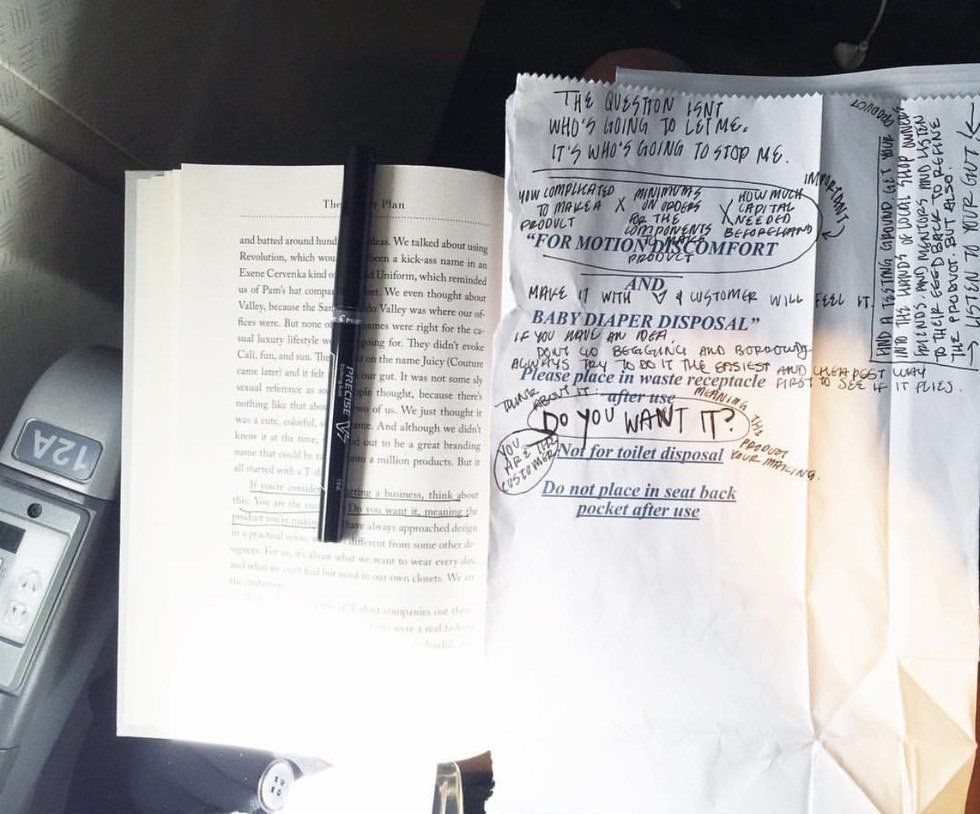 12A
Plan
and batted around ideas. We talked about using
Revolution, which been a kick-ass name in an
Exene Cervenka kind o Uniform, which reminded
us of Pam's hat We even thought about
Valley, because the Valley was where our of-
fices were. But none names were right for the ca-
sual luxury lifestyle going for. They didn't evoke
Cali, fun, and sun. on the name Juicy (Couture
came later) and it felt our gut. It was not some sly
sexual reference as people thought, because there's
nothing like that two of us. We just thought it
was a cute, colorful, And although we didn't
know it at the time, out to be a great branding
name that could be onto a million products. But it
all started with a
If you're a business, think about
this: You are the Do you want it, meaning the
product you're have always approached design
in a practical sense, different from some other de-
signers. For us, it's about what we want to wear every day,
and what we can't find but need in our own closets. We are
the customers.
of T-shirt companies out there
were a real
PILOT
PRECISE V7
THE QUESTION ISNT
WHO'S GOING TO LET ME.
IT'S WHO'S GOING TO STOP ME.
HOW COMPLICATED TO MAKE A PRODUCT X MINIMUMS ON ORDERS FOR THE COMPONENTS TO MAKE PRODUCT X HOW MUCH CAPITAL NEEDED BEFOREHAND
IMPORTANT
"FOR MOTION DISCOMFORT
AND
MAKE IT WITH ♡ & CUSTOMER WILL FEEL IT.
BABY DIAPER DISPOSAL"
IF YOU HAVE AN IDEA
DONT GO BEGGING AND BORROWING
ALWAYS TRY TO DO IT THE EASIEST AND CHEAPEST WAY
FIRST TO SEE IF IT FLIES.
Please place in waste receptacle
after use
ABOUT IT:
DO YOU WANT IT?
MEANING THE
PRODUCT
YOUR MAKING.
YOU
ARE THE
CUSTOMER
Not for toilet disposal
Do not place in seat back
pocket after use
FIND A TESTING GROUND, GET YOUR
PRODUCT
INTO THE HANDS OF LOCAL SHOP OWNERS
FRIENDS, AND MENTORS AND LISTEN
TO THEIR FEEDBACK TO REFINE
THE PRODUCT. BUT ALSO.
→ LISTEN TO YOUR GUT. ←